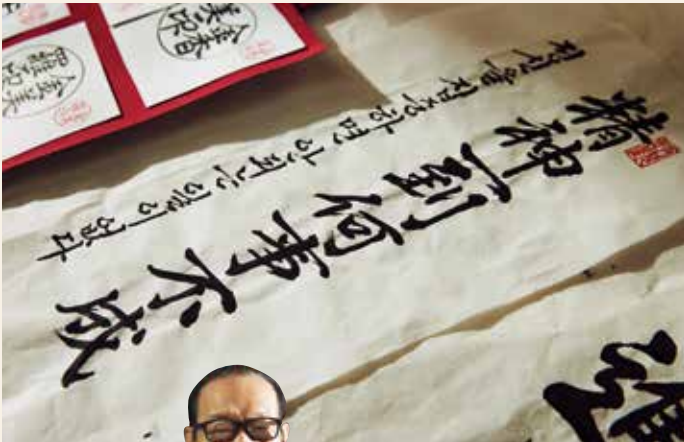 精神一到何事不成
정신을 집중하면 안되는 일이 없다
金香
金美